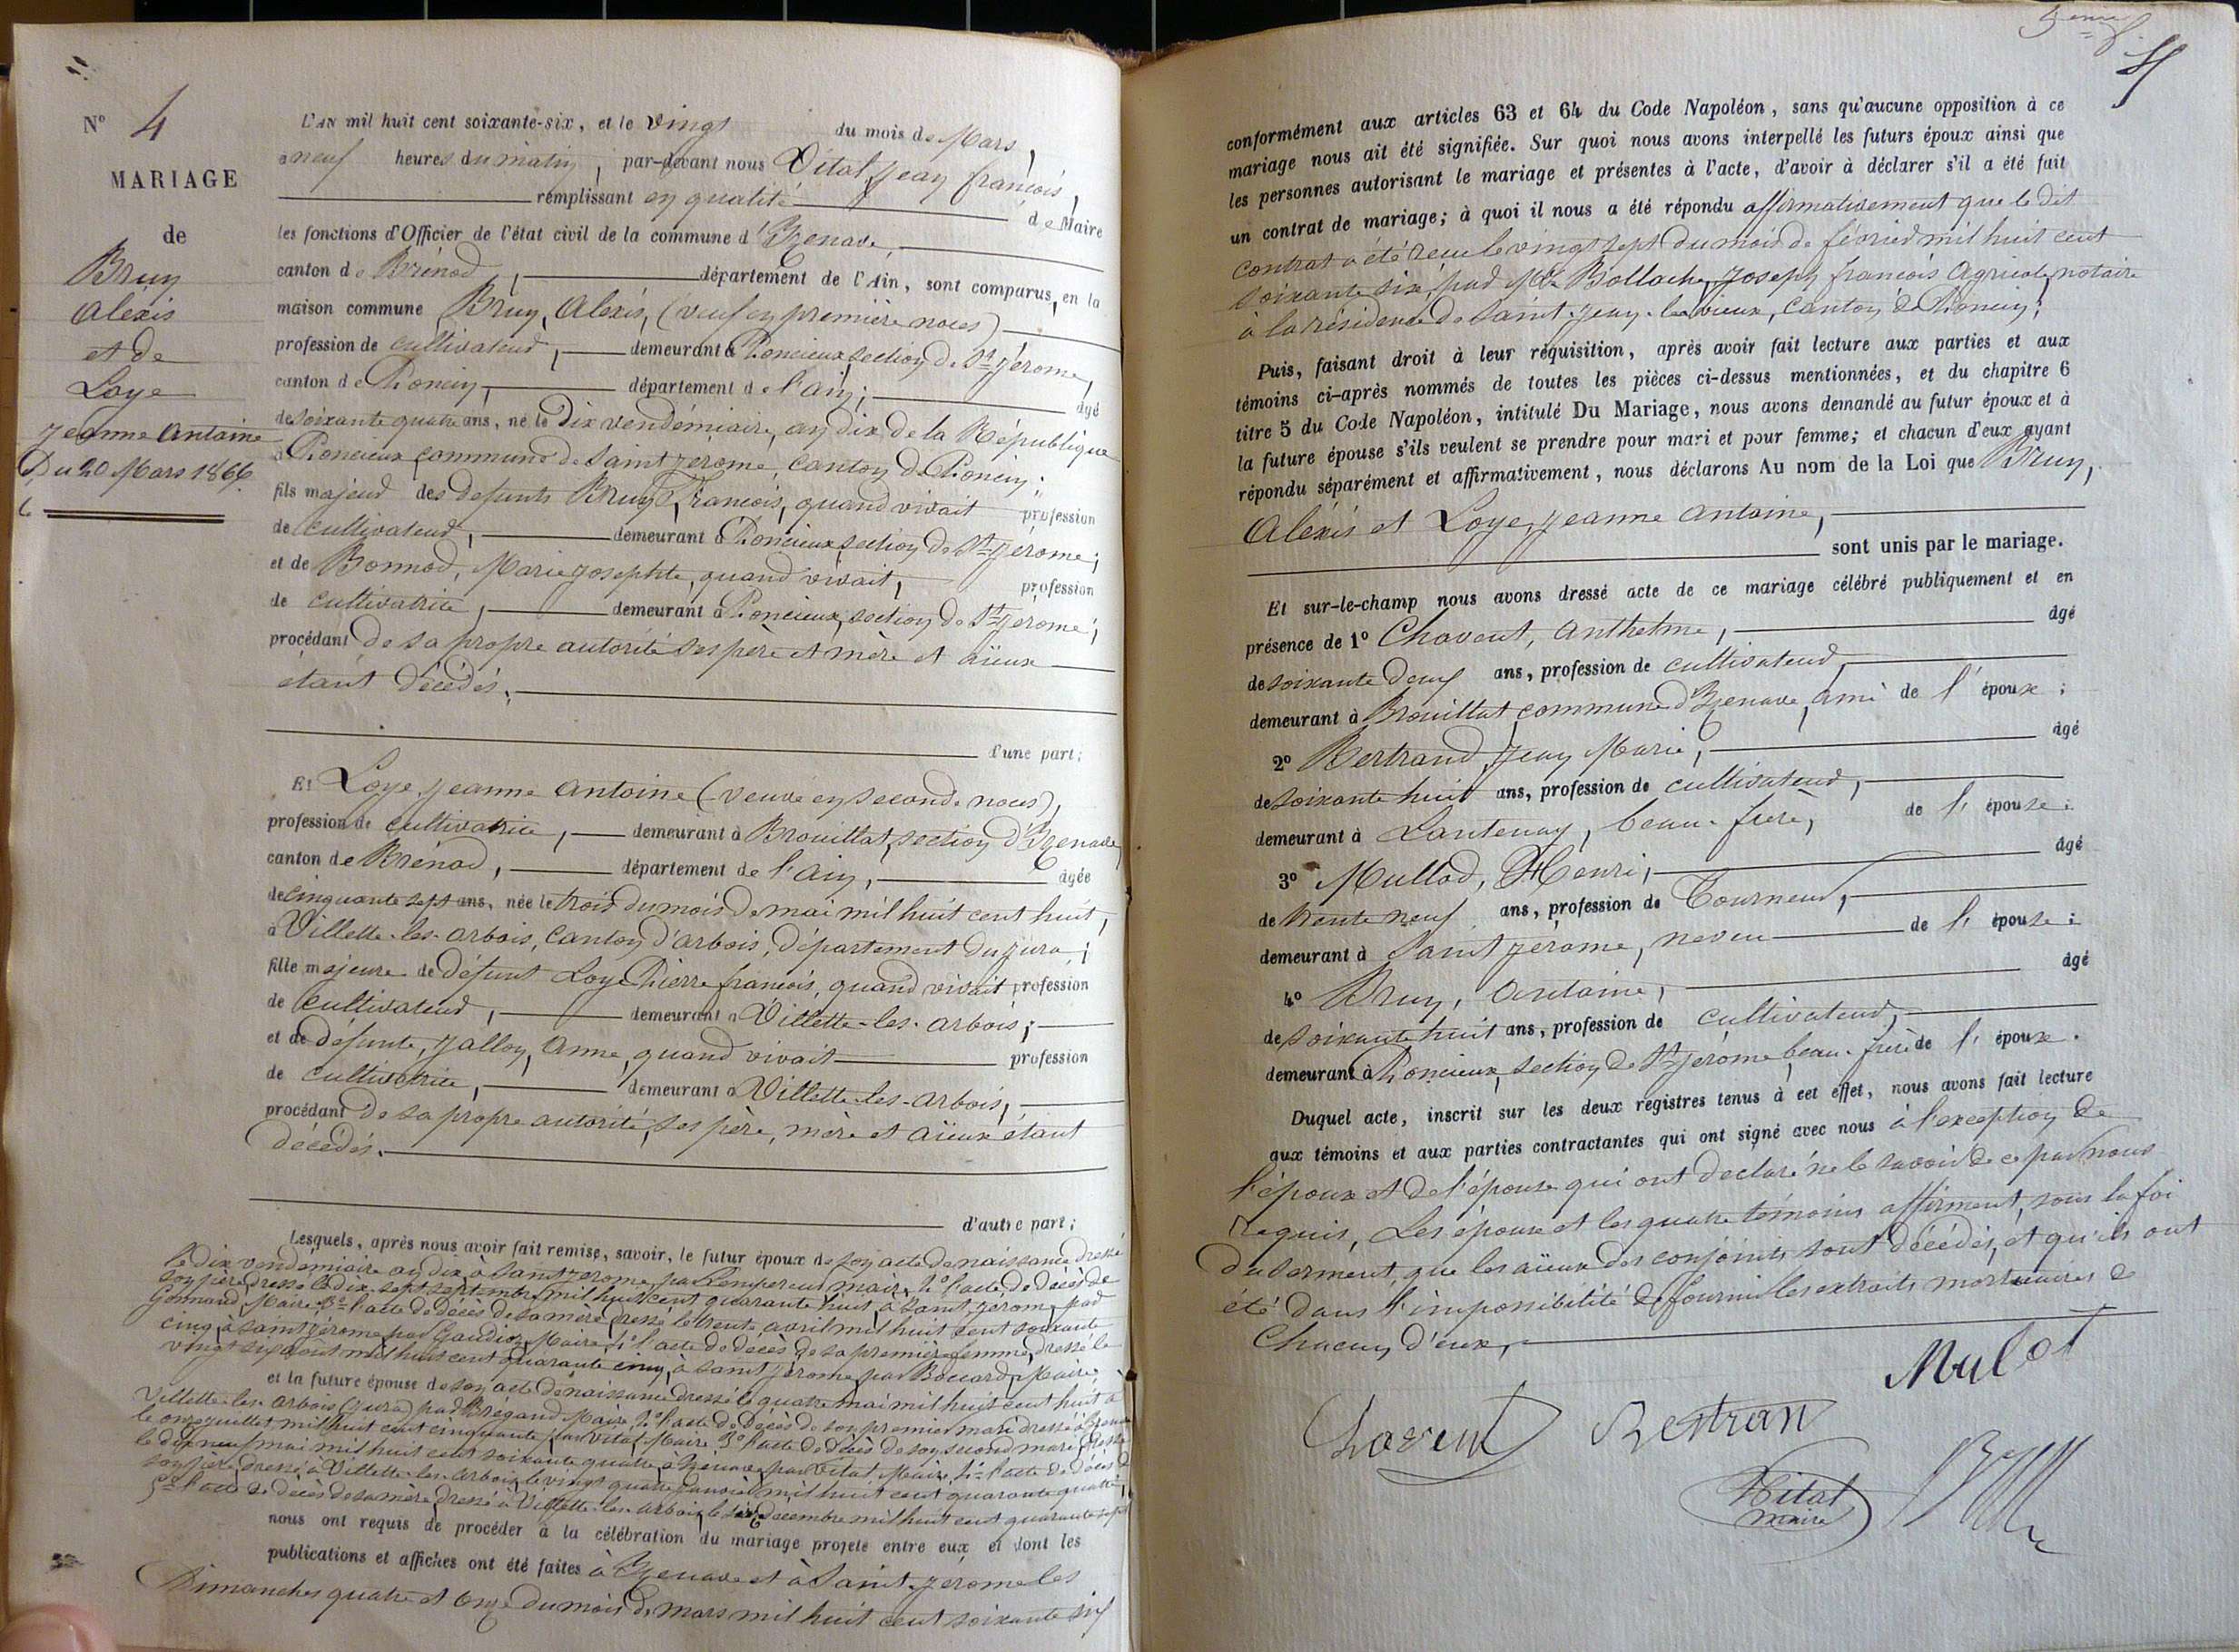 N° 4
MARIAGE
de
Bruy
Alexis
et de
Loye
Jeanne Antoine
Du 20 Mars 1866.
L'AN mil huit cent soixante-six, et le vingt du mois de Mars,
a neuf heures du matin, par-devant nous Vital, Jean françois,
remplissant en qualité de Maire
les fonctions d'Officier de l'état civil de la commune d'Izenave,
canton de Brénod, département de l'Ain, sont comparus, en la
maison commune Bruy, Alexis, (veuf en première noces)
profession de cultivateur, demeurant à Poncieux, section de St Jérome,
canton de Poncin, département de l'Ain; âgé
de soixante quatre ans, né le Dix vendémiaire, an dix de la République
à Poncieux commune de Saint Jérome, canton de Poncin;
fils majeur des defunts Bruy, François, quand vivait profession
de cultivateur, demeurant à Poncieux, section de St Jérome;
et de Bonnod, Marie Josephte, quand vivait, profession
de cultivatrice, demeurant à Poncieux, section de St Jérome;
procédant de sa propre autorité ses père et mère et aïeux
étant décédés.
d'une part;
Et Loye, Jeanne Antoine (veuve en seconde noces),
profession de cultivatrice, demeurant à Brouillat, section d'Izenave,
canton de Brénod, département de l'Ain, âgée
de cinquante sept ans, née le trois du mois de mai mil huit cent huit,
à Villette-les-arbois, canton d'arbois, département du Jura;
fille majeure de défunt Loye Pierre françois, quand vivait profession
de cultivateur, demeurant à Villette-les-arbois;
et de défunte, Jalloy, Anne, quand vivait profession
de cultivatrice, demeurant à Villette-les-arbois,
procédant de sa propre autorité, ses père, mère et aïeux étant
décédés.
d'autre part;
Lesquels, après nous avoir fait remise, savoir, le futur époux de son acte de naissance dressé
le dix vendémiaire an dix, à Saint Jerome, par Lempereur maire, 2° l'acte de décès de
son père, dressé le dix sept septembre mil huit cent quarante huit à Saint Jerome, par
Gonnand, Maire, 3° l'acte de décès de sa mère dressé le trente avril mil huit cent soixante
cinq, à Saint Jérome par Gaudioz, Maire, 4° l'acte de décès de sa première femme, dressé le
vingt six aout mil huit cent quarante cinq, à Saint Jérome, par Boccard, Maire;
et la future épouse de son acte de naissance dressé le quatre mai mil huit cent huit à
Villette-les-Arbois (Jura) par Bregand Maire, 2° l'acte de décès de son premier mari dressé à Izenave
le onze juillet mil huit cent cinquante, par Vital, Maire, 3° l'acte de décès de son second mari, dressé
le dix neuf mai mil huit cent soixante quatre à Izenave par Vital, Maire, 4° l'acte de décès de
son père, dressé à Villette-les-Arbois, le vingt quatre janvier mil huit cent quarante quatre,
5° l'acte de décès de sa mère dressé à Villette-les-arbois, le décembre mil huit cent quarante sept
nous ont requis de procéder à la célébration du mariage projeté entre eux et dont les
publications et affiches ont été faites à Izenave et à Saint-Jérome les
Dimanches quatre et onze du mois de Mars mil huit cent soixante six
conformément aux articles 63 et 64 du Code Napoléon, sans qu'aucune opposition à ce
mariage nous ait été signifiée. Sur quoi nous avons interpellé les futurs époux ainsi que
les personnes autorisant le mariage et présentes à l'acte, d'avoir à déclarer s'il a été fait
un contrat de mariage; à quoi il nous a été répondu affirmativement que le dit
contrat a été recu le vingt sept du mois de février mil huit cent
soixante six, par Me Bollache, Joseph françois Agricole, notaire
à la résidence de Saint-Jean-le-vieux, canton de Poncin;
Puis, faisant droit à leur réquisition, après avoir fait lecture aux parties et aux
témoins ci-après nommés de toutes les pièces ci-dessus mentionnées, et du chapitre 6
titre 5 du Code Napoléon, intitulé Du Mariage, nous avons demandé au futur époux et à
la future épouse s'ils veulent se prendre pour mari et pour femme; et chacun d'eux ayant
répondu séparément et affirmativement, nous déclarons Au nom de la Loi que Bruy,
Alexis et Loye, Jeanne Antoine,
sont unis par le mariage.
Et sur-le-champ nous avons dressé acte de ce mariage célébré publiquement et en
présence de 1° Chavent, Anthelme, âgé
de soixante deux ans, profession de cultivateur,
demeurant à Brouillat, commune d'Izenave, ami de l'époux;
2° Bertrand, Jean Marie, âgé
de soixante huit ans, profession de cultivateur,
demeurant à Lantenay, beau-frère, de l'épouse;
3° Mullod, Henri, âgé
de trente neuf ans, profession de Tourneur,
demeurant à Saint Jérome, neveu de l'épouse;
4° Bruy, Antoine, âgé
de soixante huit ans, profession de cultivateur,
demeurant à Poncieux, section de St Jérome, beau-frère de l'époux.
Duquel acte, inscrit sur les deux registres tenus à cet effet, nous avons fait lecture
aux témoins et aux parties contractantes qui ont signé avec nous à l'exception de
l'époux et de l'épouse qui ont declaré ne le savoir de ce par nous
requis, Les époux et les quatre témoins affirment, sous la foi
du serment, que les aïeux des conjoints sont décédés, et qu'ils ont
été dans l'impossibilité de fournir les extraits mortuaires de
chacun d'eux,
Mulot
Chavent Bertran
Vital
maire